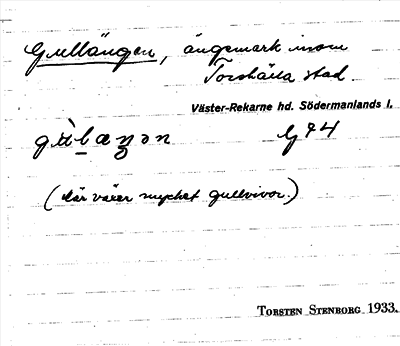 Gullängen, ängsmark inom
Torshälla stad.
Väster-Rekarne hd. Södermanlands l.
(där växer mycket gullvivor.)
Torsten Stenborg 1933.